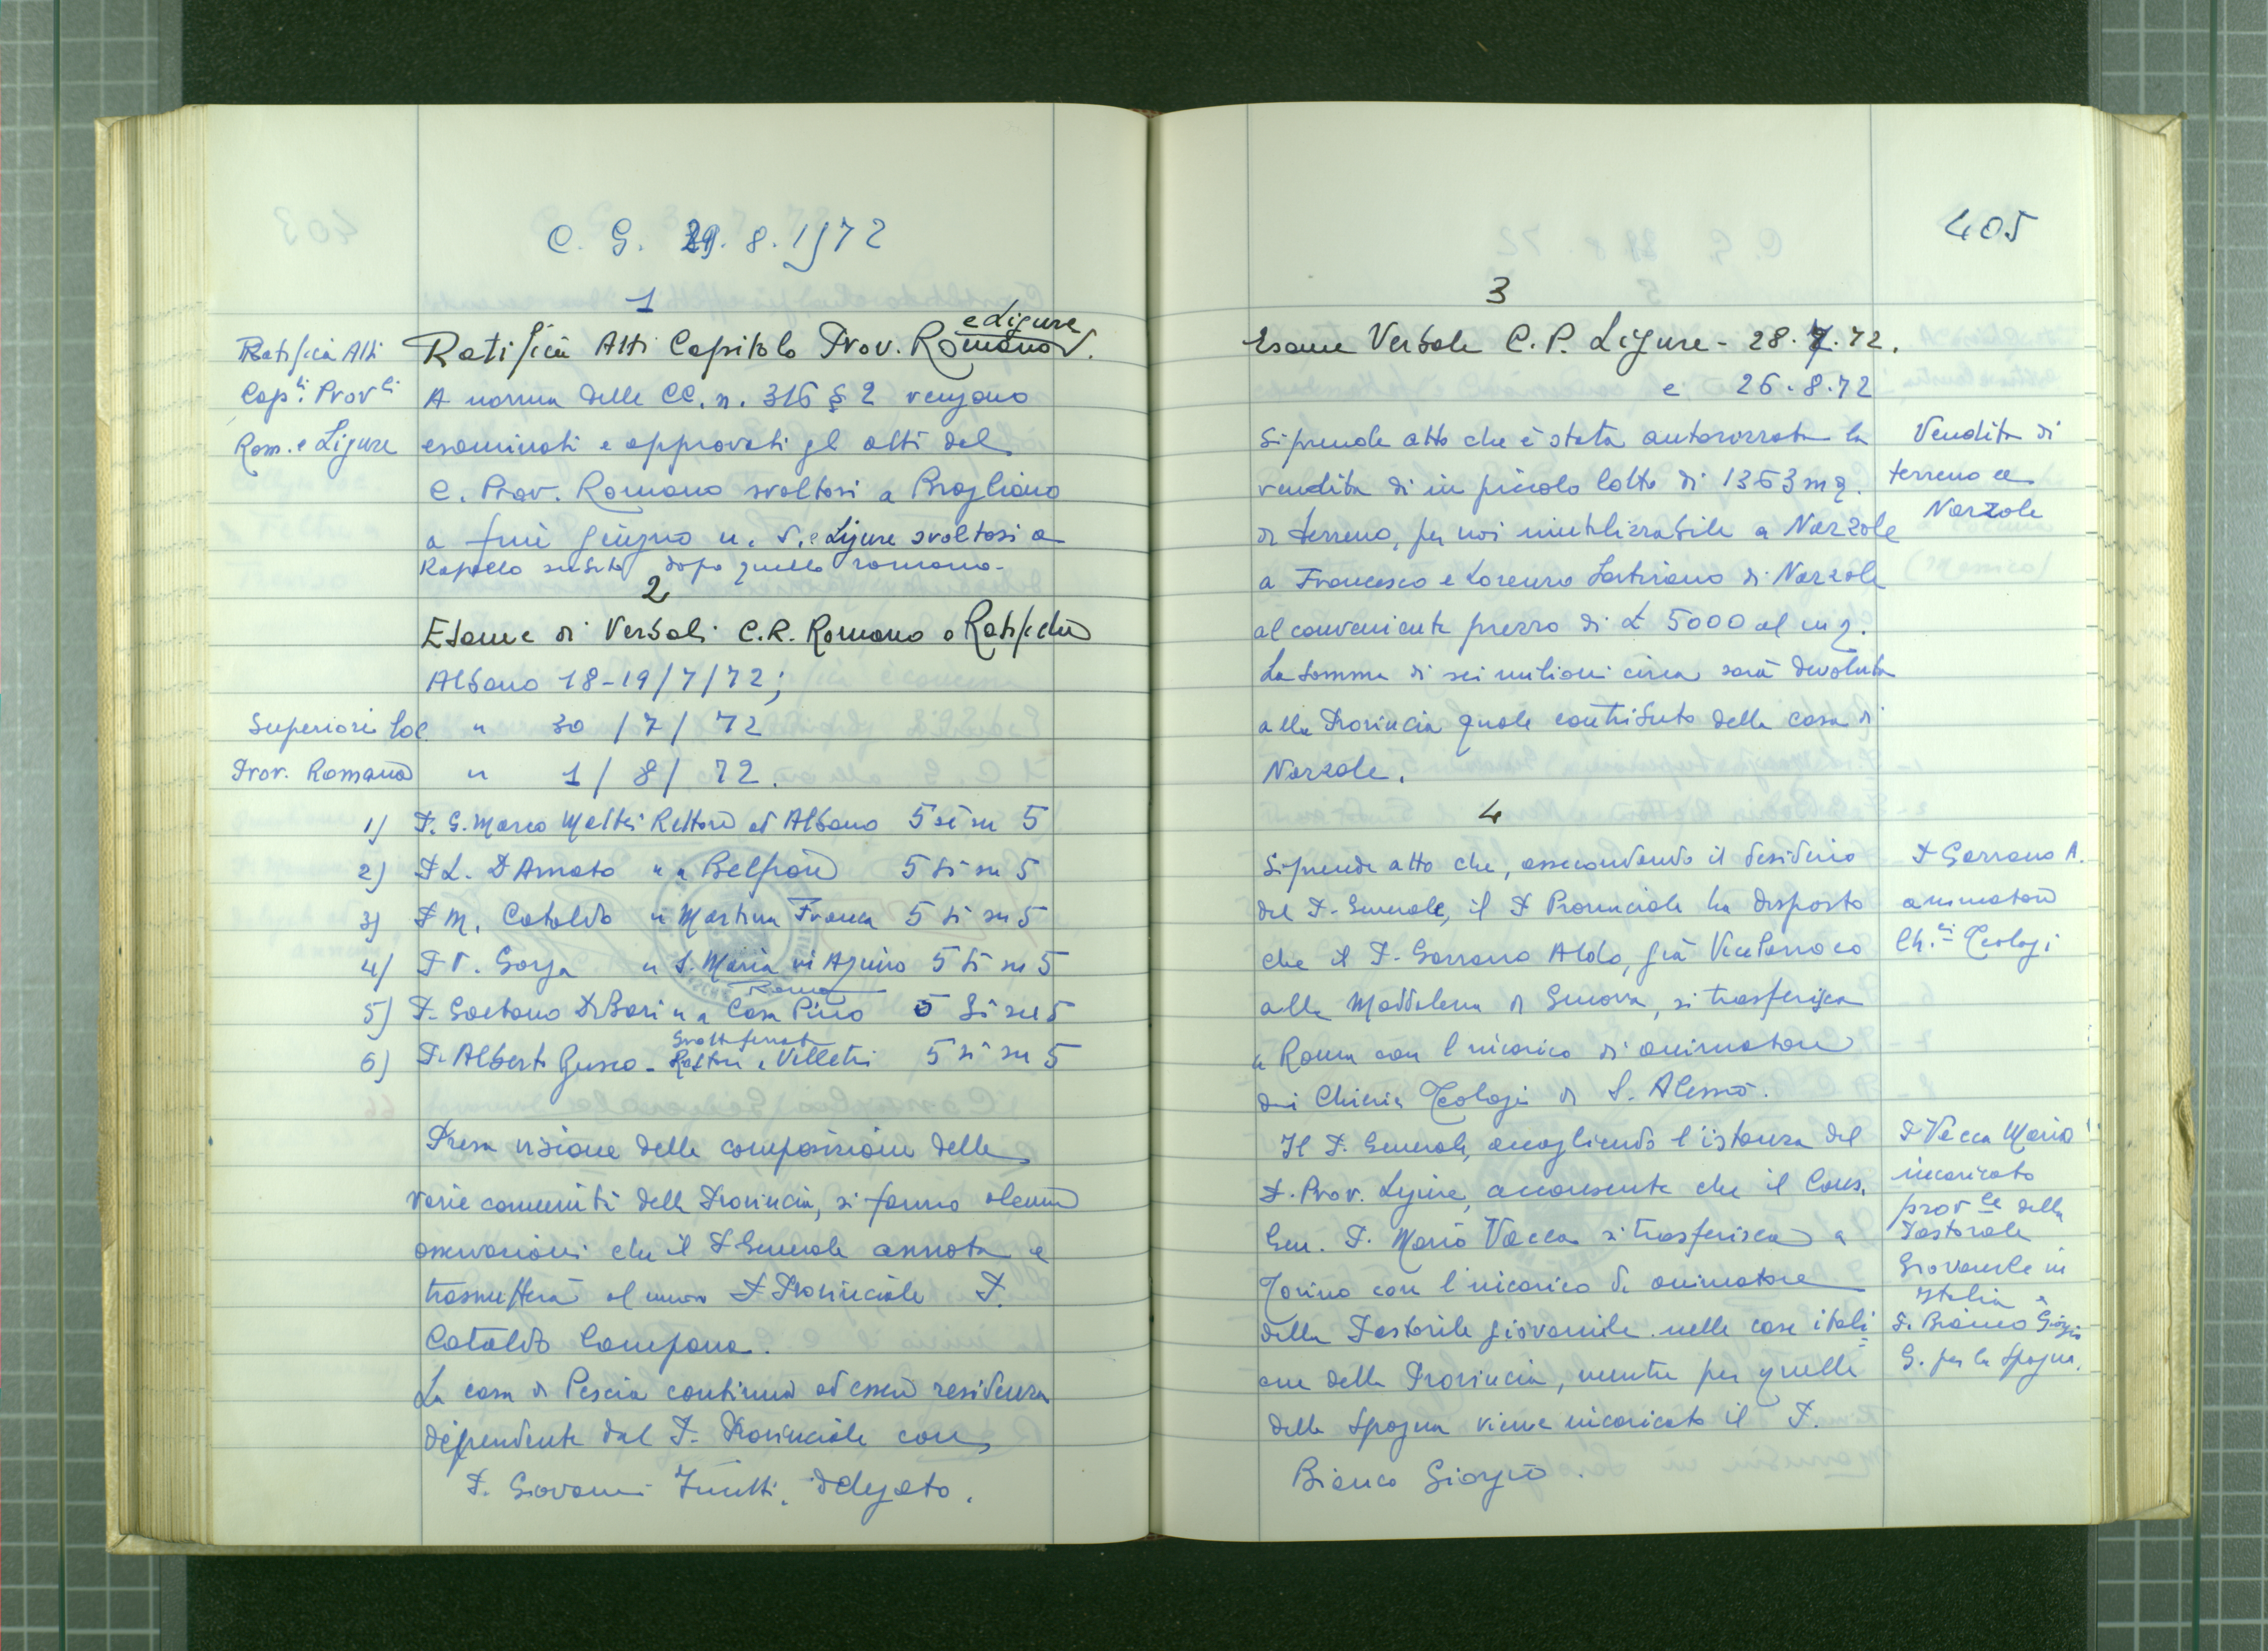 C. G. 29.8.1972
1
Ratifica Atti
Cap.li Prov.li
Rom. e Ligure
Ratifica Atti Capitolo Prov. Romano e Ligure.
A norma delle CC. n. 316 § 2 vengono
esaminati e approvati gl atti del
C. Prov. Romano svoltosi a
a fine giugno u. s. e Ligure svoltosi a
Rapallo subito dopo quello romano.
2
Esame di Verbali C.R. Romano e Ratifiche
Albano 18-19/7/72;
Superiori loc.
Prov. Romana
" 30/7/72
" 1/8/72.
1) P. G. Marco Mattei Rettore ad Albano 5 sì su 5
2) P L. D'Amato " a Belfiore 5 sì su 5
3) P M. Cataldo " Martina Franca 5 sì su 5
4) P V. Gorga " S. Maria in Aquiro 5 sì su 5
Roma
5) P. Gaetano Di Bari " a Casa Pino 5 sì su 5
6) P. Alberto Busco - Rettore Grottaferrata e Velletri 5 sì su 5
Presa visione delle composizioni delle
varie comunità della Provincia, si fanno alcune
osservazioni che il P Generale annota e
trasmetterà al nuovo P Provinciale P.
Cataldo Campana.
La casa di Pescia continua ad essere residenza
dipendente dal P. Provinciale con
P. Giovanni delegato.
405
3
Esame Verbale C. P. Ligure - 28.7.72.
e 26.8.72
Si prende atto che è stata autorizzata la
vendita di un piccolo lotto di 1363 mq.
di terreno, per noi inutilizzabile a Narzole
a Francesco e Lorenzo Sartirano di Narzole
al conveniente prezzo di £ 5000 al mq.
La somma di sei milioni circa sarà devoluta
alla Provincia quale contributo della casa di
Narzole.
Vendita di
terreno a
Narzole
4
Si prende atto che, assecondando il desiderio
del P. Generale, il P Provinciale ha disposto
che il P. Garrano Aldo, già Vice Parroco
alla Maddalena di Genova, si trasferisca
a Roma con l'incarico di animatore
dei Chierici Teologi di S. Alessio.
P Garrano A.
animatore
Ch.ci Teologi
Il P. Generale, accogliendo l'istanza del
P. Prov. Ligure, acconsente che il Cons.
Gen. P. Mario Vacca si trasferisca a
Torino con l'incarico di animatore
della Pastorale giovanile nelle case itali=
ane della Provincia, mentre per quelle
della Spagna viene incaricato il P.
Bianco Giorgio.
P Vacca Mario
incaricato
prov.le della
Pastorale
Giovanile in
Italia e
P. Bianco Giorgio
G. per la Spagna.